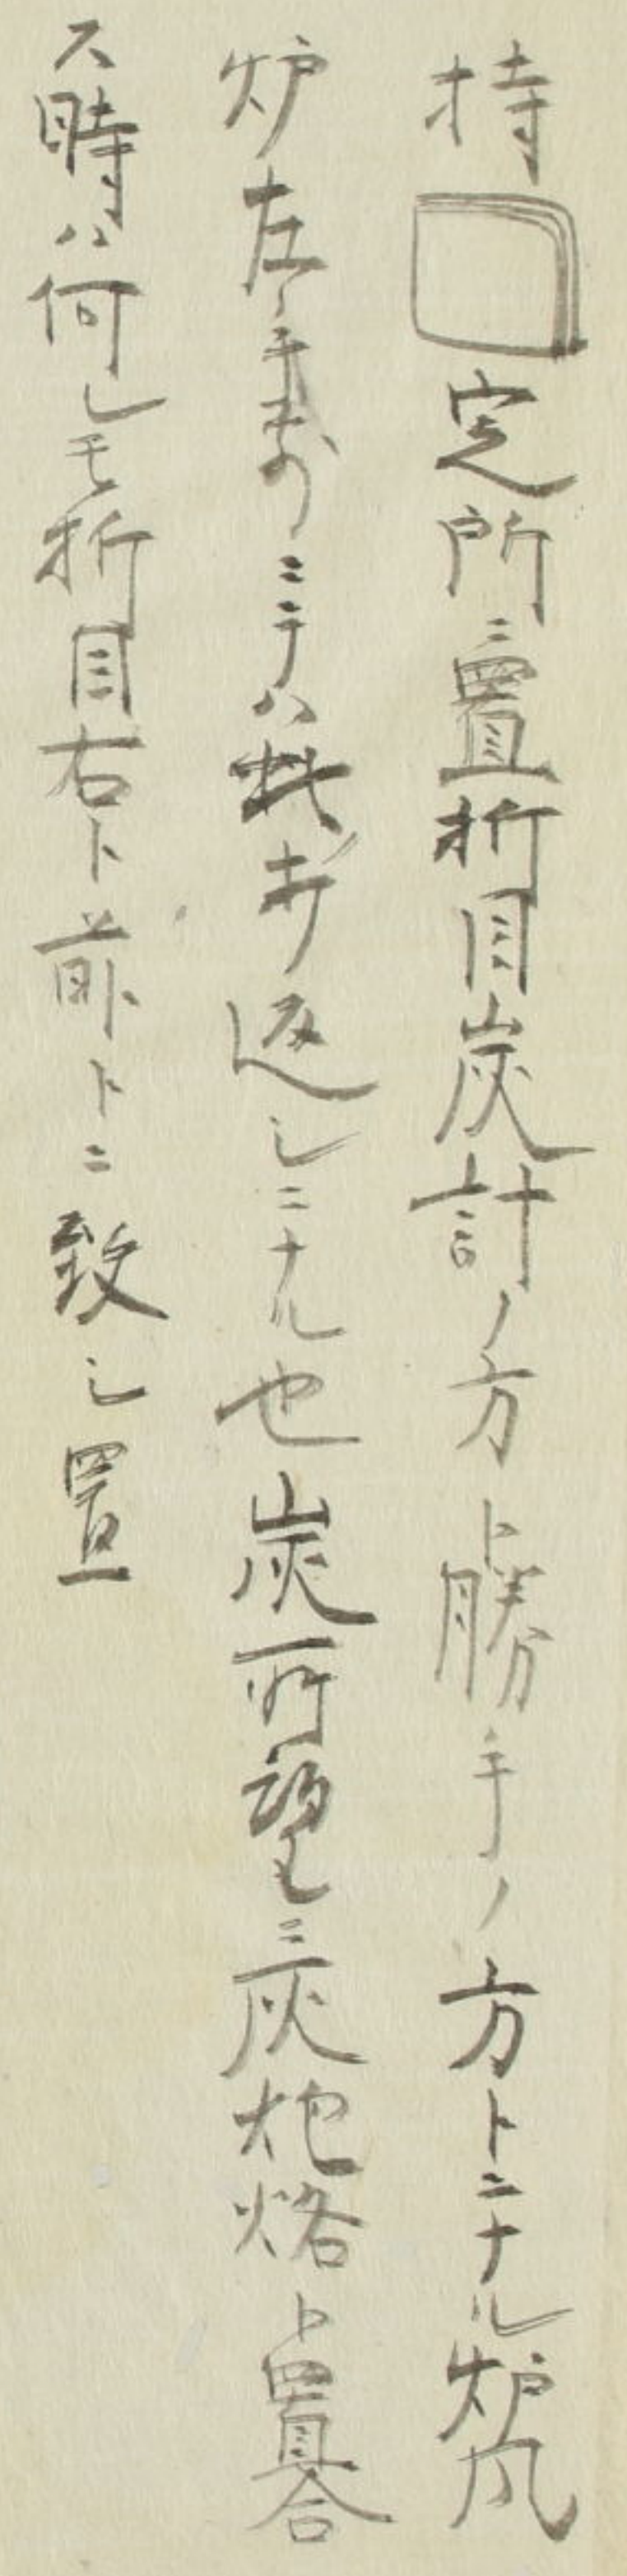 持定所ニ置折目炭計ノ方ト勝手ノ方トニナル炉風
炉左ノ手前ニテハ返シニナル也炭所望ニ灰炮烙ト置合
ス時ハ何レモ折目右ト前トニ致シ置